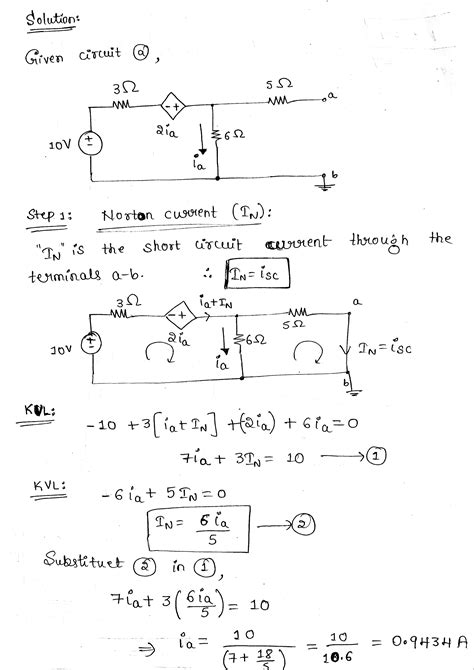 Solution:
Given circuit ②,
3Ω
5Ω
a
- +
2ia
6Ω
ia
10V
+
-
b
Step 1: Norton current (IN):
"IN" is the short circuit current through the
terminals a-b. ∴ IN = isc
3Ω
ia+IN
a
- +
2ia
5Ω
6Ω
IN = isc
10V
ia
b
KVL: -10 + 3[ia+IN] +(2ia) + 6ia = 0
7ia + 3IN = 10 → ①
KVL: -6ia + 5IN = 0
IN = 6ia/5 → ②
Substituet ② in ①,
7ia + 3(6ia/5) = 10
⇒ ia = 10/(7+18/5) = 10/10.6 = 0.9434 A